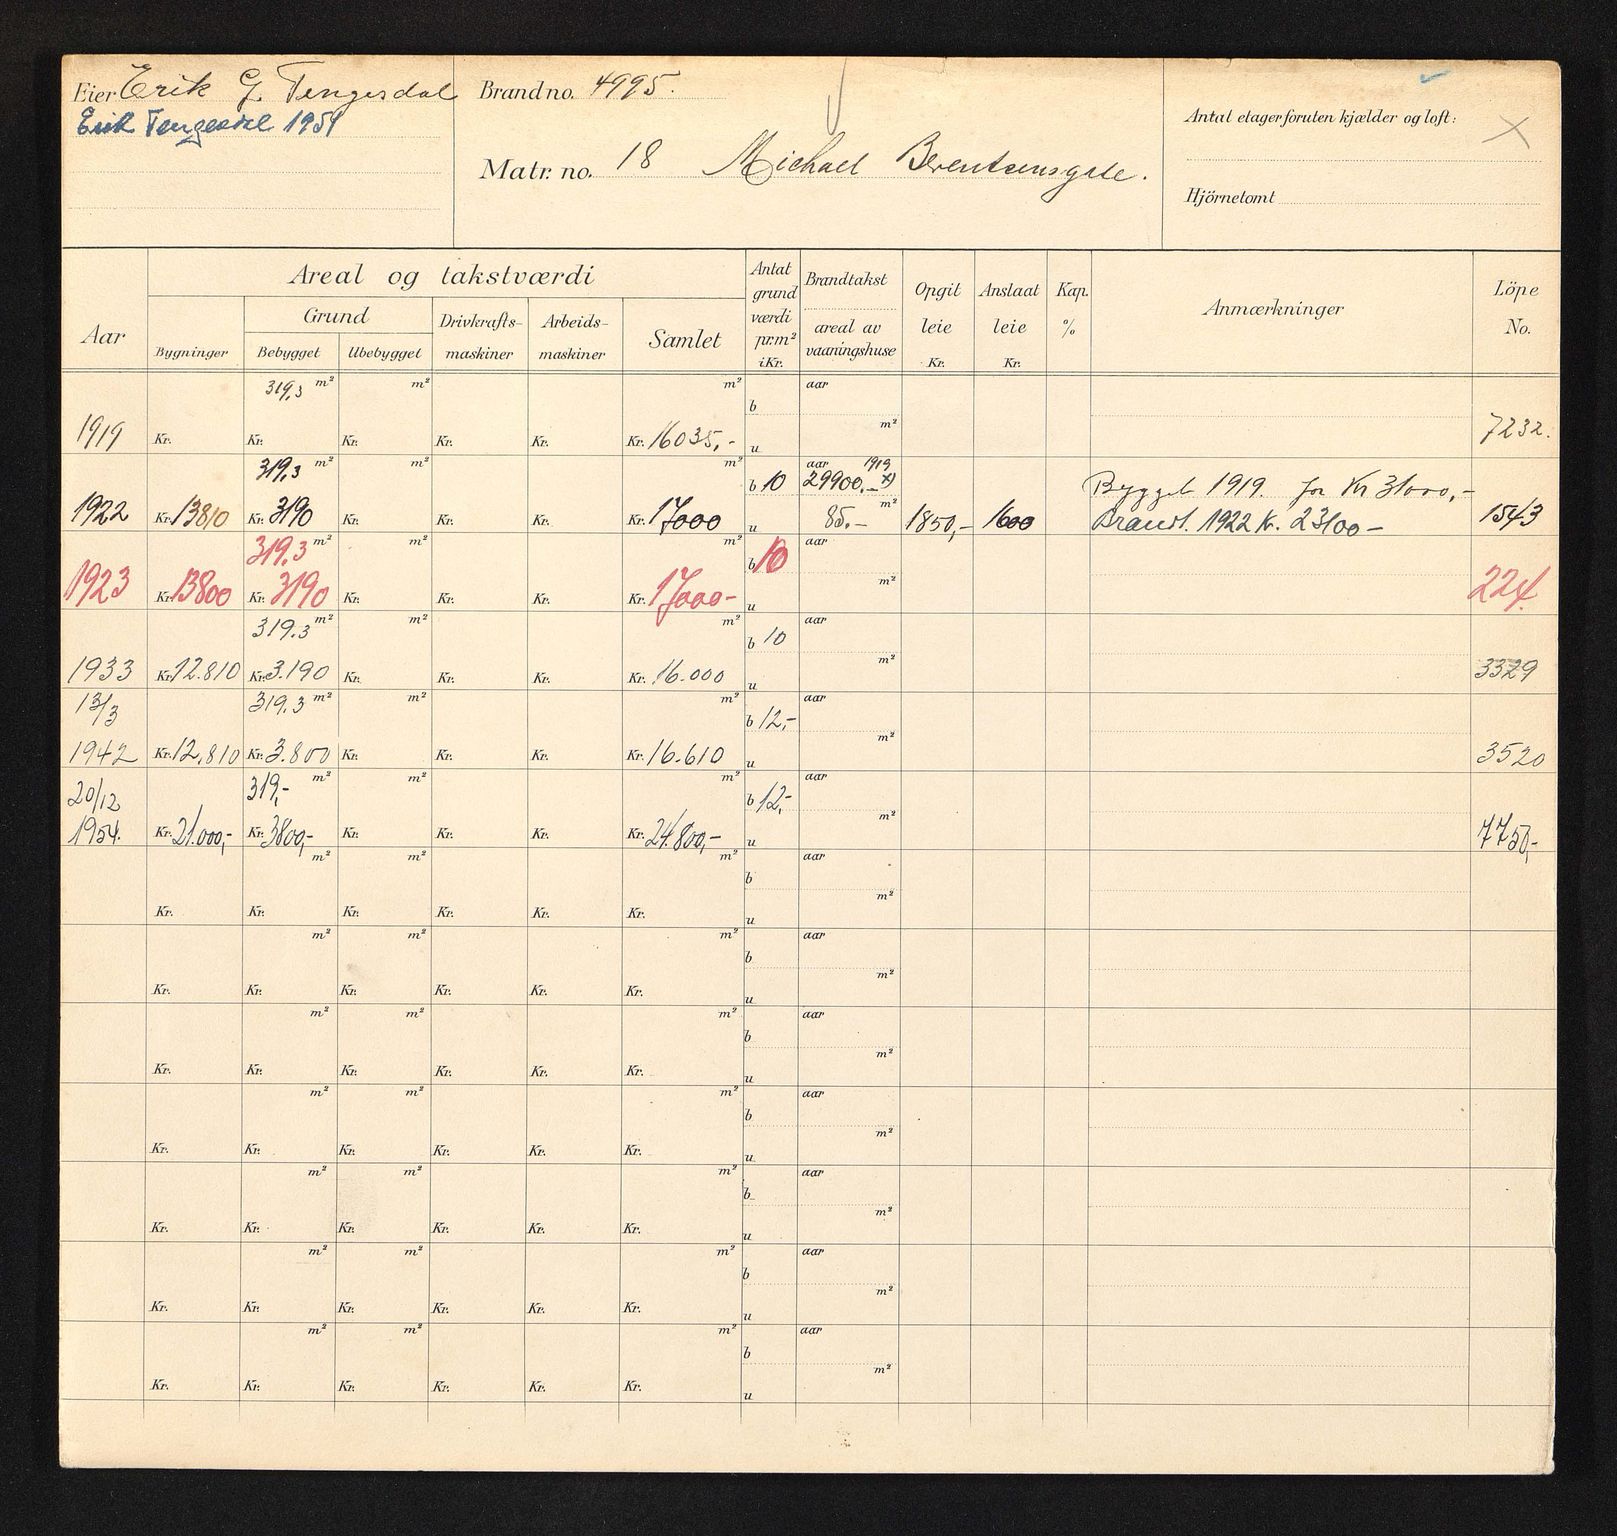 Eier Erik G. Tengesdal
Erik Tengesdal 1951
Brand no. 4995.
Matr. no. 18 Michael Berentsensgate.
Antal etager foruten kjælder og loft:
Hjörnetomt
Aar
Areal og takstværdi
Bygninger
Grund
Bebygget Ubebygget
Drivkrafts-maskiner
Arbeids-maskiner
Samlet
Antat grund værdi pr.m² i Kr.
Brandtakst
areal av vaaningshuse
Opgit leie Kr.
Anslaat leie Kr.
Kap. %
Anmærkninger
Löpe No.
319,3 m² m² m² b aar
1919 Kr. Kr. Kr. Kr. Kr. Kr. 16035,- u m² 7232.
319,3 m² m² m² b 10 aar 1919 29900,- x) Bygget 1919. for Kr 31000,-
1922 Kr. 13810 Kr. 3190 Kr. Kr. Kr. Kr. 17000 u 85.- m² 1850,- 1600 Brandt. 1922 Kr. 23100- 1543
319.3 m² m² m² b 10 aar
1923 Kr. 13800 Kr. 3190 Kr. Kr. Kr. Kr. 17000- u m² 224.
319.3 m² m² m² b 10 aar
1933 Kr. 12.810 Kr. 3.190 Kr. Kr. Kr. Kr. 16.000 u m² 3329
13/3 319.3 m² m² m² b 12,- aar
1942 Kr. 12,810 Kr. 3.800 Kr. Kr. Kr. Kr. 16.610 u m² 3520
20/12 319,- m² m² m² b 12,- aar
1954. Kr. 21.000,- Kr. 3800,- Kr. Kr. Kr. Kr. 24.800,- u m² 7750,-
m² m² m² b aar
Kr. Kr. Kr. Kr. Kr. Kr. u m²
m² m² m² b aar
Kr. Kr. Kr. Kr. Kr. Kr. u m²
m² m² m² b aar
Kr. Kr. Kr. Kr. Kr. Kr. u m²
m² m² m² b aar
Kr. Kr. Kr. Kr. Kr. Kr. u m²
m² m² m² b aar
Kr. Kr. Kr. Kr. Kr. Kr. u m²
m² m² m² b aar
Kr. Kr. Kr. Kr. Kr. Kr. u m²
m² m² m² b aar
Kr. Kr. Kr. Kr. Kr. Kr. u m²